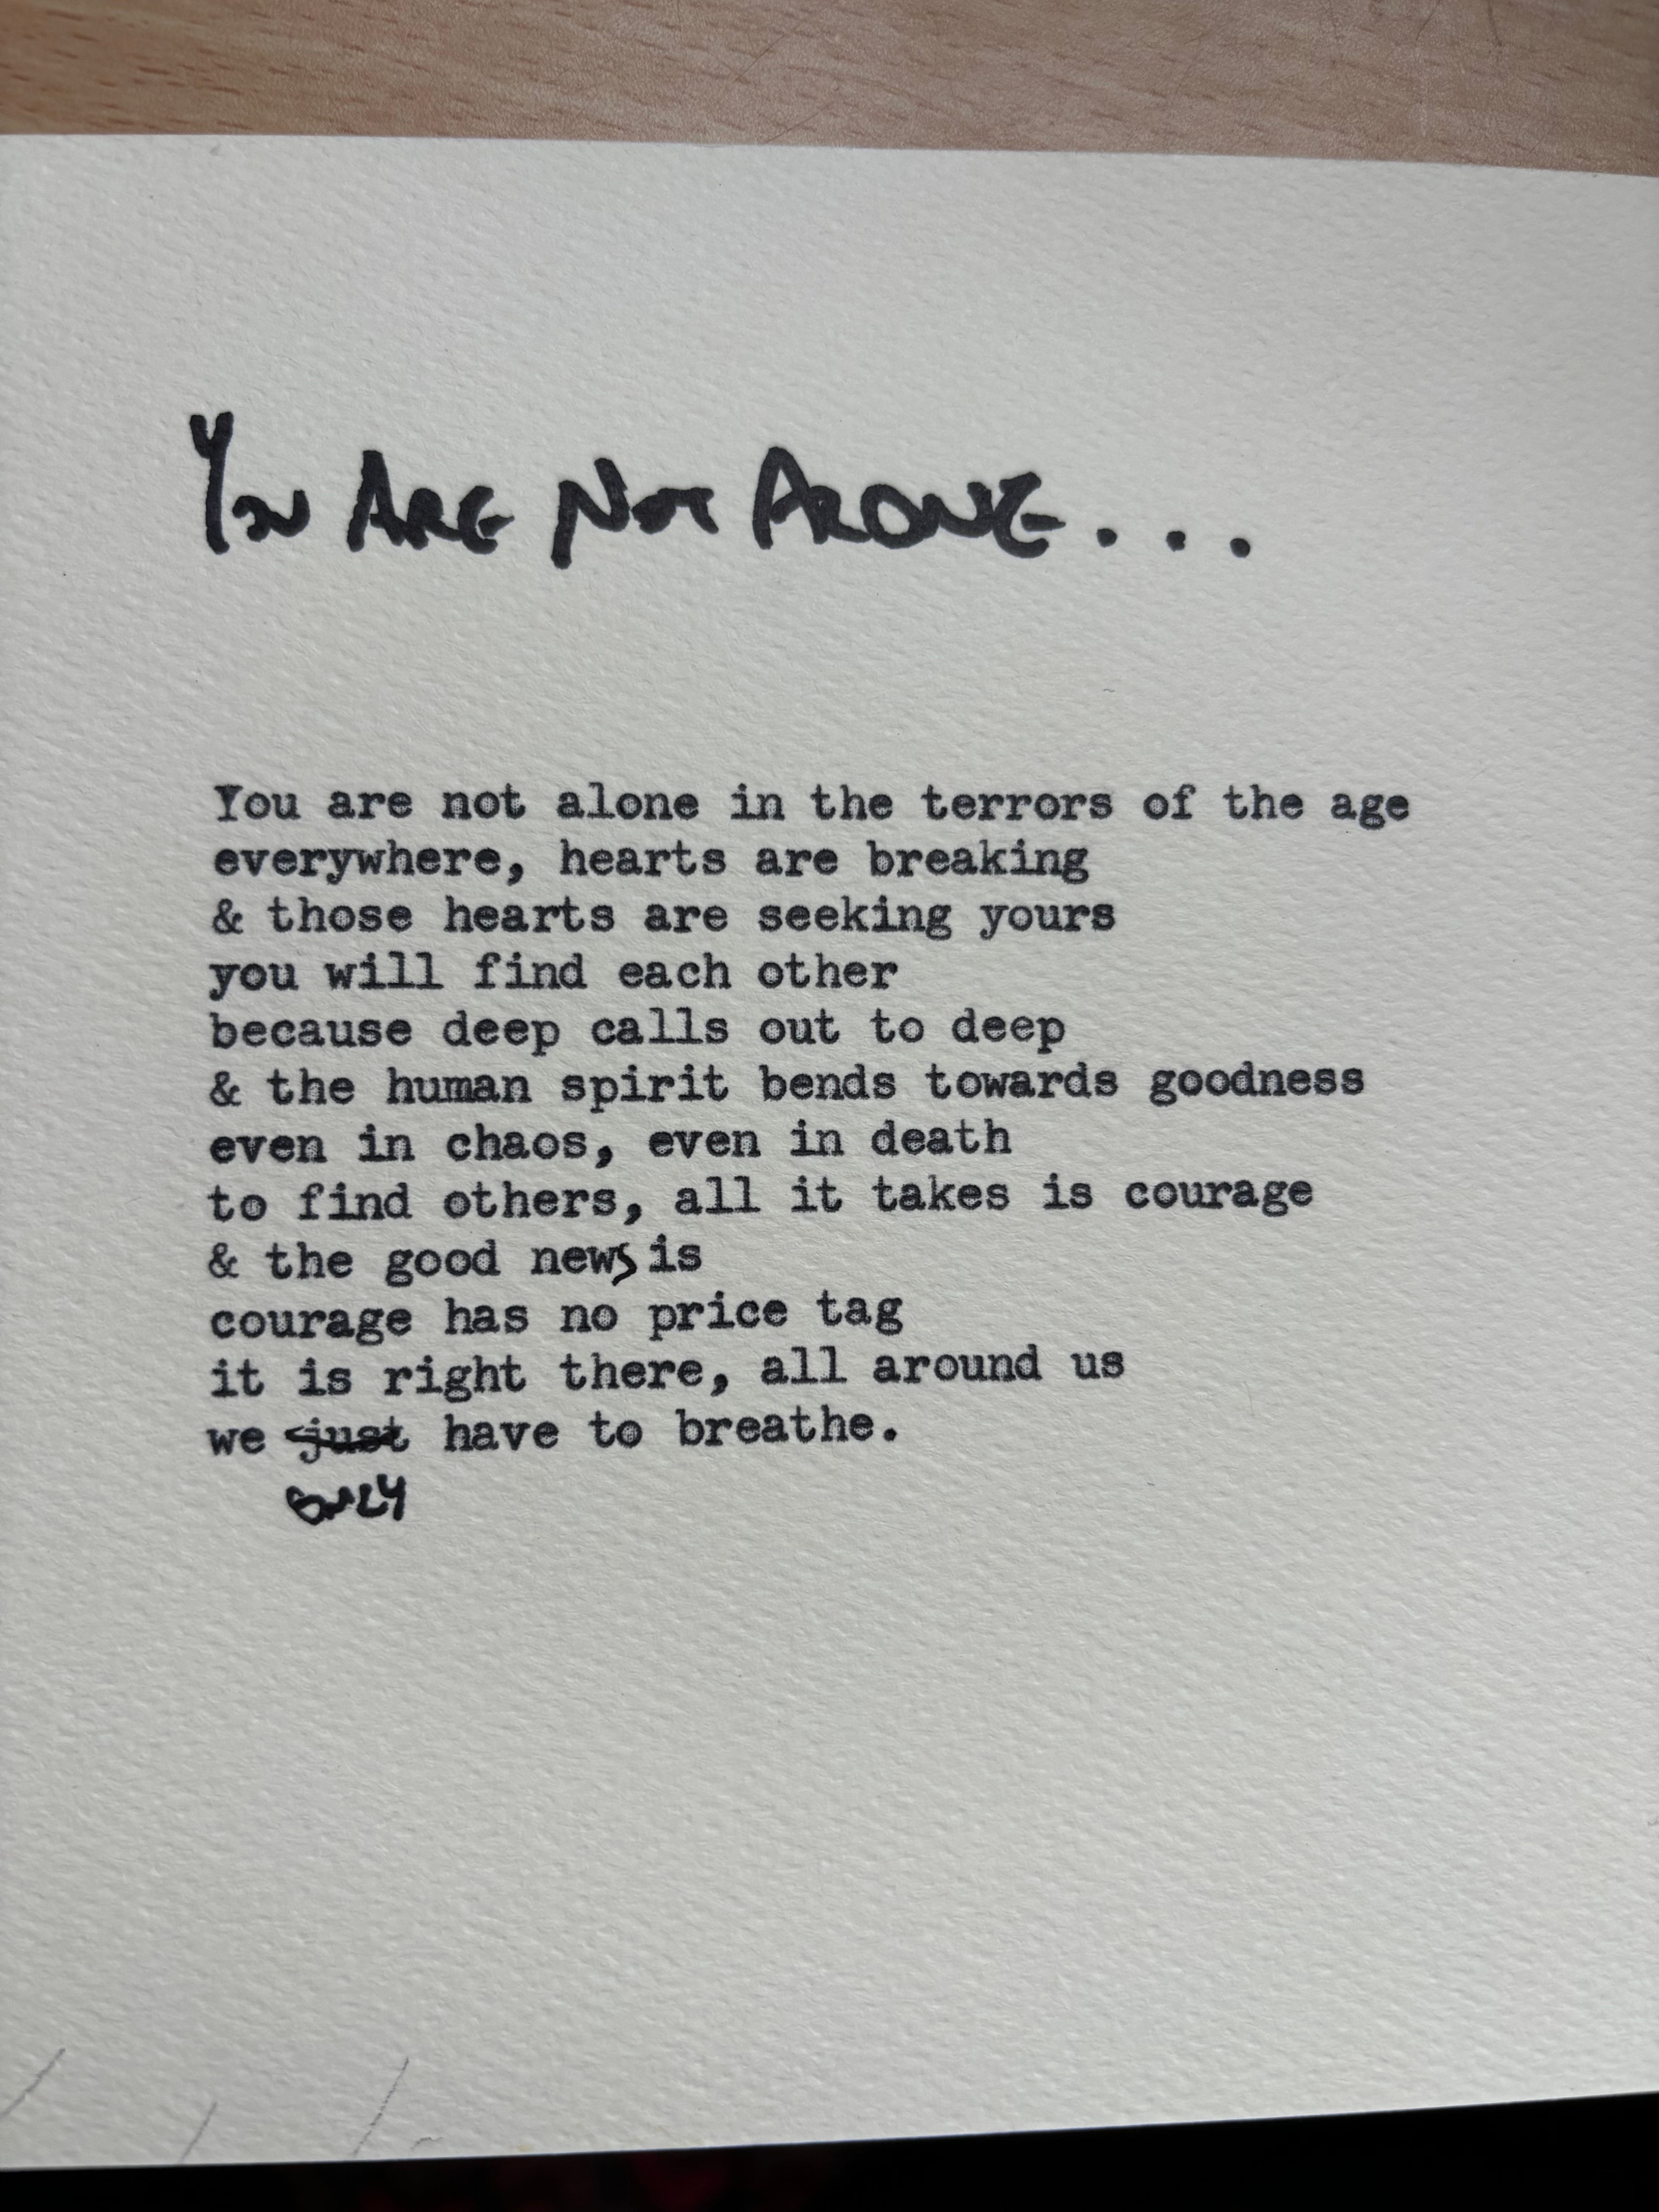 You ARE NOT ALONE...
You are not alone in the terrors of the age
everywhere, hearts are breaking
& those hearts are seeking yours
you will find each other
because deep calls out to deep
& the human spirit bends towards goodness
even in chaos, even in death
to find others, all it takes is courage
& the good news is
courage has no price tag
it is right there, all around us
we just have to breathe.
ONLY